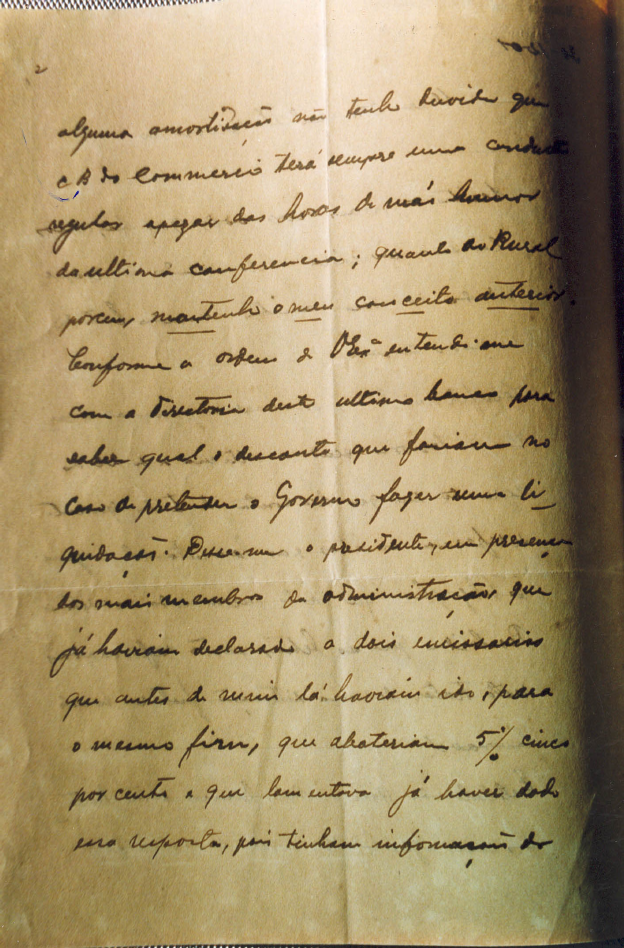 2
alguma amortisação não tenho duvida que
o B do Commercio terá sempre uma conducta
regular apezar das horas de máo humor
da ultima conferencia; quanto ao Rural
porem, mantenho o meu conceito anterior.
Conforme a ordem de VExª entendi-me
com a directoria deste ultimo banco para
saber qual o desconto que fariam no
caso de pretender o Governo fazer uma li_
quidação. Disse-me o presidente, em presença
dos mais membros da administração, que
já haviam declarado a dois emissarios
que antes de mim lá haviam ido, para
o mesmo fim, que abateriam 5% cinco
por cento e que lamentava já haver dado
essa resposta, pois tinham informação do